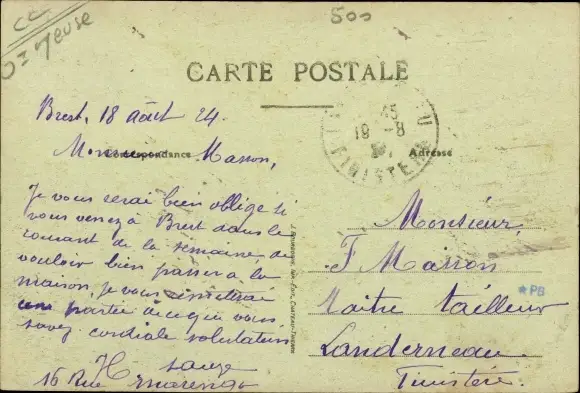 500
CARTE POSTALE
Brest, 18 août 24.
Correspondance
Adresse
Monsieur Masson,
Je vous serai bien obligé si
vous venez à Brest dans le
courant de la semaine, de
vouloir bien passer à la
maison, je vous
partie de ce que vous
savez cordiale salutation
H
16 Rue Marengo
Monsieur
F Masson
Maitre tailleur
Landerneau
Finistère.
18 -8
FINISTERE
*PB